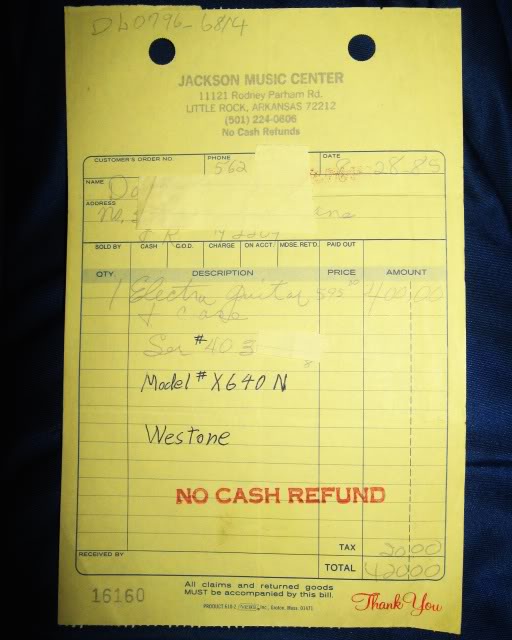 Db0796-6814
JACKSON MUSIC CENTER
11121 Rodney Parham Rd.
LITTLE ROCK, ARKANSAS 72212
(501) 224-0806
No Cash Refunds
CUSTOMER'S ORDER NO. PHONE 562 DATE 8-28-85
NAME Do
ADDRESS No.
SOLD BY CASH C.O.D. CHARGE ON ACCT. MDSE. RET'D. PAID OUT
QTY. DESCRIPTION PRICE AMOUNT
1 Electra guitar 595 400.00
& case
Ser # 40 3
Model # X640N
Westone
NO CASH REFUND
TAX 20.00
RECEIVED BY TOTAL 420.00
16160 All claims and returned goods
MUST be accompanied by this bill.
Thank You